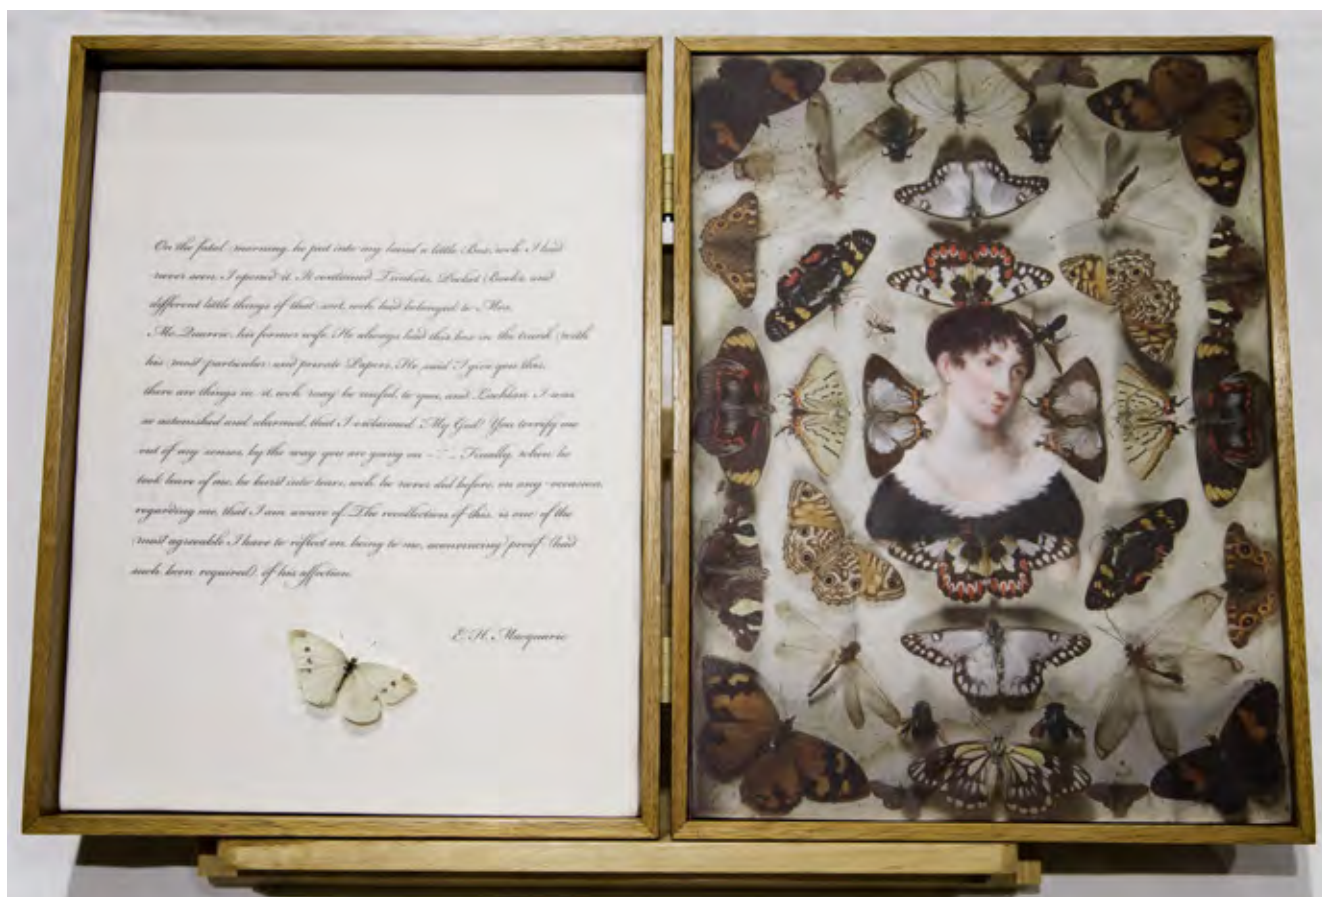 On the fatal morning, he put into my hand a little Box, wch I had
never seen. I opened it. It contained Trinkets, Pocket Books, and
different little things of that sort, wch had belonged to Mrs.
Mc.Quarie, his former wife. He always had this box in the trunk (with
his most particular and private Papers. He said I give you this,
there are things in it, wch may be useful to you, and Lachlan. I was
so astonished and alarmed, that I exclaimed My God! You terrify me
out of my senses, by the way you are going on - Finally, when he
took leave of me, he burst into tears, wch he never did before, on any occasion,
regarding me, that I am aware of. The recollection of this, is one of the
most agreeable I have to reflect on, being to me, a convincing proof (had
such been required), of his affection.
E. H. Macquarie